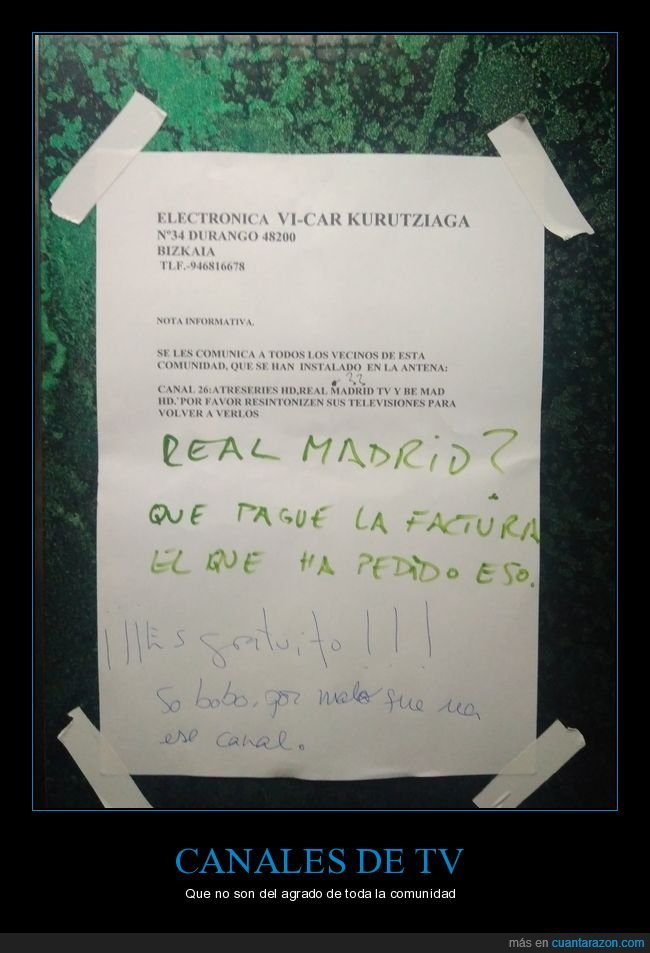 ELECTRONICA VI-CAR KURUTZIAGA
Nº34 DURANGO 48200
BIZKAIA
TLF.-946816678
NOTA INFORMATIVA.
SE LES COMUNICA A TODOS LOS VECINOS DE ESTA
COMUNIDAD, QUE SE HAN INSTALADO EN LA ANTENA:
??
CANAL 26:ATRESERIES HD,REAL MADRID TV Y BE MAD
HD.`POR FAVOR RESINTONIZEN SUS TELEVISIONES PARA
VOLVER A VERLOS
REAL MADRID?
QUE PAGUE LA FACTURA
EL QUE HA PEDIDO ESO.
¡¡¡Es gratuito!!!
So bobo, por malo que sea
ese canal.
CANALES DE TV
Que no son del agrado de toda la comunidad
más en cuantarazon.com